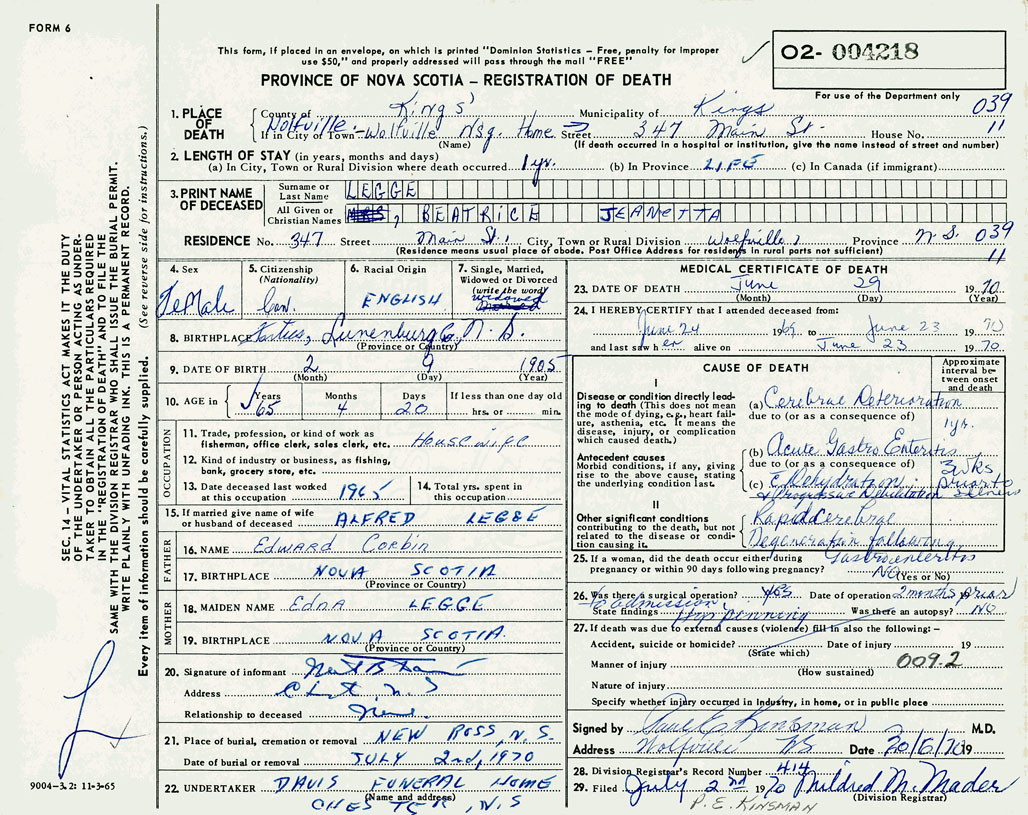 FORM 6
This form, if placed in an envelope, on which is printed "Dominion Statistics – Free, penalty for improper
use $50," and properly addressed will pass through the mail "FREE"
O2- 004218
PROVINCE OF NOVA SCOTIA – REGISTRATION OF DEATH
For use of the Department only
039
11
1. PLACE OF DEATH
County of Kings' Municipality of Kings
Wolfville:-Wolfville Nsg. Home 347 Main St.
If in City or Town Street House No.
(Name) (If death occurred in a hospital or institution, give the name instead of street and number)
2. LENGTH OF STAY (in years, months and days)
(a) In City, Town or Rural Division where death occurred 1 yr. (b) In Province LIFE (c) In Canada (if immigrant)
3. PRINT NAME OF DECEASED
Surname or Last Name LEGGE
All Given or Christian Names MRS, BEATRICE JEANETTA
RESIDENCE No. 347 Street Main St., City, Town or Rural Division Wolfville, Province N.S. 039
(Residence means usual place of abode. Post Office Address for residents in rural parts not sufficient)
11
4. Sex
Female
5. Citizenship
(Nationality)
Can.
6. Racial Origin
ENGLISH
7. Single, Married,
Widowed or Divorced
(write the word)
widowed
Married
8. BIRTHPLACE Lunenburg Co. N.S.
(Province or Country)
9. DATE OF BIRTH 2 9 1905
(Month) (Day) (Year)
10. AGE in
Years Months Days If less than one day old
65 4 20 hrs. or min.
OCCUPATION
11. Trade, profession, or kind of work as
fisherman, office clerk, sales clerk, etc. Housewife
12. Kind of industry or business, as fishing,
bank, grocery store, etc.
13. Date deceased last worked
at this occupation 1965
14. Total yrs. spent in
this occupation
15. If married give name of wife
or husband of deceased ALFRED LEGGE
FATHER
16. NAME EDWARD Corbin
17. BIRTHPLACE NOVA SCOTIA
(Province or Country)
MOTHER
18. MAIDEN NAME Edna LEGGE
19. BIRTHPLACE NOVA SCOTIA.
(Province or Country)
20. Signature of informant
Address
Relationship to deceased
21. Place of burial, cremation or removal NEW ROSS, N.S.
Date of burial or removal JULY 2nd, 1970
22. UNDERTAKER DAVIS FUNERAL HOME
(Name and address)
CHESTER, N.S
MEDICAL CERTIFICATE OF DEATH
23. DATE OF DEATH June 29 1970
(Month) (Day) (Year)
24. I HEREBY CERTIFY that I attended deceased from:
June 24 1969 to June 23 1970
and last saw her alive on June 23 1970
CAUSE OF DEATH
Approximate
interval be-
tween onset
and death
I
Disease or condition directly lead-
ing to death (This does not mean
the mode of dying, e.g., heart fail-
ure, asthenia, etc. It means the
disease, injury, or complication
which caused death.)
(a) Cerebral Deterioration
1 yr.
due to (or as a consequence of)
Antecedent causes
Morbid conditions, if any, giving
rise to the above cause, stating
the underlying condition last.
(b) Acute Gastro Enteritis
due to (or as a consequence of) 3 wks
(c) Dehydration
& Progressive Debilitation
II
Other significant conditions
contributing to the death, but not
related to the disease or condi-
tion causing it.
Rapid Cerebral
Degeneration following
Gastroenteritis
25. If a woman, did the death occur either during
pregnancy or within 90 days following pregnancy? NO
(Yes or No)
26. Was there a surgical operation? yes Date of operation 2 months prior 19
to admission
State findings Hip penning Was there an autopsy? NO
27. If death was due to external causes (violence) fill in also the following: –
Accident, suicide or homicide? Date of injury 19
(State which)
009.2
Manner of injury
(How sustained)
Nature of injury
Specify whether injury occurred in industry, in home, or in public place
Signed by Paul E Kinsman M.D.
Address Wolfville NS Date 30/6/70 19
28. Division Registrar's Record Number 414
29. Filed July 2nd 1970 Mildred M. Mader
(Division Registrar)
P. E. KINSMAN
SEC. 14 – VITAL STATISTICS ACT MAKES IT THE DUTY
OF THE UNDERTAKER OR PERSON ACTING AS UNDER-
TAKER TO OBTAIN ALL THE PARTICULARS REQUIRED
IN THE "REGISTRATION OF DEATH" AND TO FILE THE
SAME WITH THE DIVISION REGISTRAR WHO SHALL ISSUE THE BURIAL PERMIT.
WRITE PLAINLY WITH UNFADING INK. THIS IS A PERMANENT RECORD.
Every item of information should be carefully supplied. (See reverse side for instructions.)
9004–3.2: 11-3-65